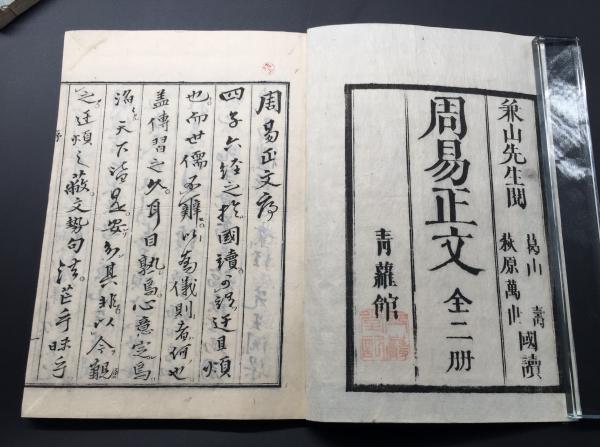 兼山先生閲
葛山壽
萩原萬世
國讀
周易正文 全二册
青蘿館
周易正文序
四子六経之於國讀可謂迂且煩
也而世儒不難以為儀則者何也
盖傳習之久耳目熟焉心意定焉
滔〻天下皆是安知其非以今觀
之迂煩之蔽文勢句法芒乎昧乎
序